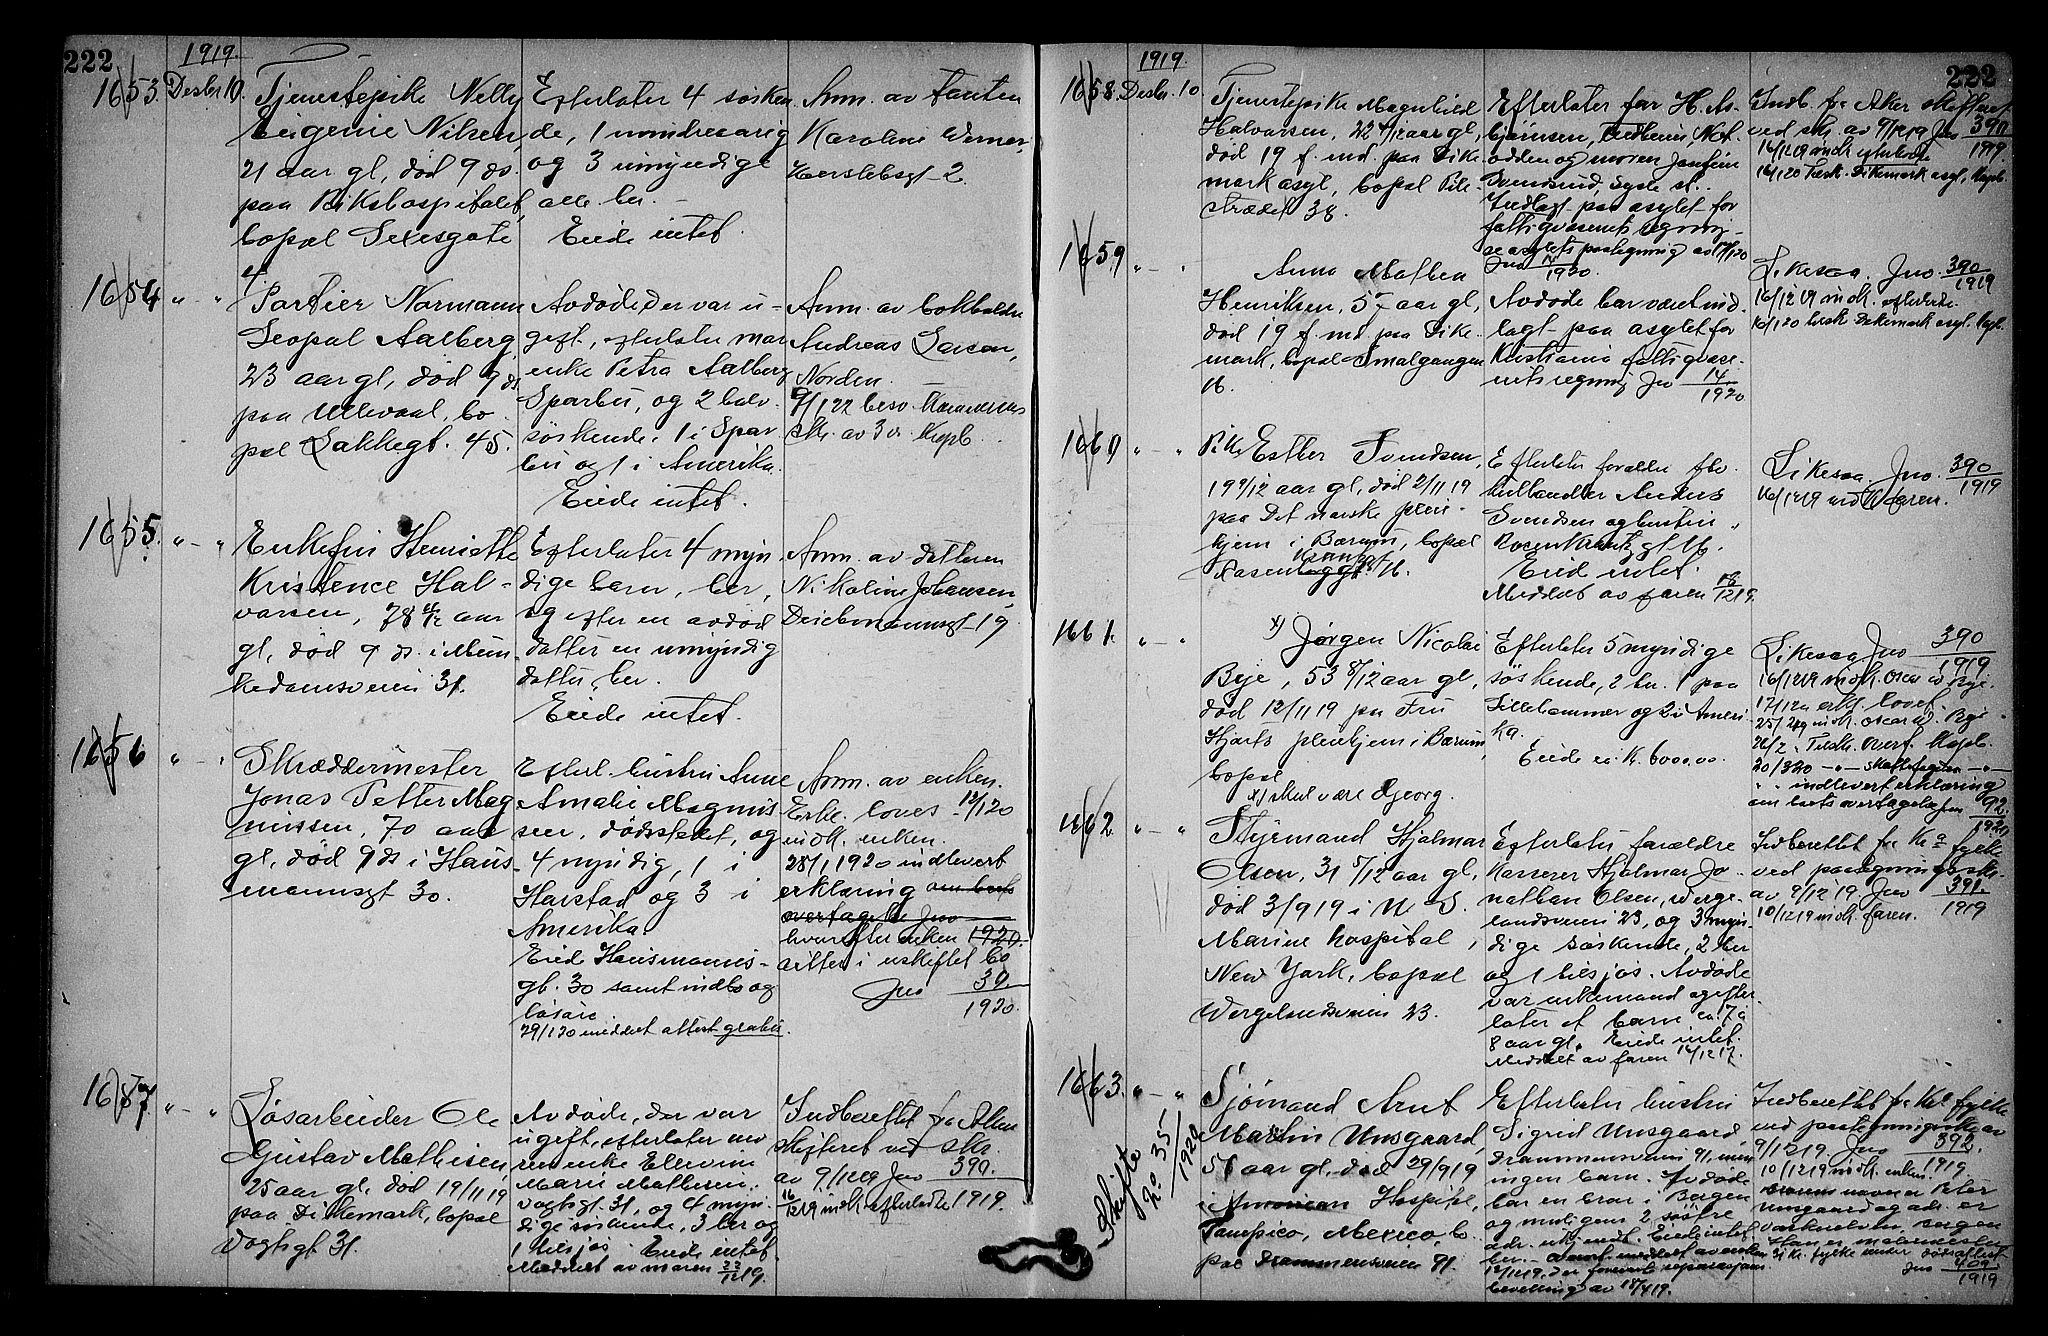 222
1919.
1653. Desbr 10. Tjenestepike Nelly
Eugenie Nilsen,
21 aar gl, død 9 ds.
paa Rikshospitalet,
bopæl
4
Efterlater 4 søsken
de, 1 mindreaarig
og 3 umyndige
alle her.
Eiede intet.
Anm. av tanten
Karoline
Herslebsgt 2.
1654 " - " Portier Normann
Leopol Aalberg,
23 aar gl, død 9 ds
paa Ullevaal, bo
pæl Lakkegt. 45.
Avdøde, der var u-
gift, efterlater mor
enke Petra Aalberg
Sparbu, og 2 halv
søskende, 1 i Spar
bu og 1 i Amerika.
Eiede intet.
Anm. av bokholder
Andreas Larsen,
Norden.
skr. av 3 ds. Kopb.
1655. " - " Enkefru Henriette
Kristence Hal-
varsen, 78 aar
gl, død 9 ds. i Mun
kedamsveien 31.
Efterlater 4 myn
dige barn, her,
og efter en avdød
datter en umyndig
datter, her.
Eiede intet.
Anm. av datteren
Nikoline Johansen,
Deichmannsgt 19
1656 " - " Skræddermester
Jonas Petter Mag
nussen, 70 aar
gl, død 9 ds i Haus-
mannsgt 30.
Efterl. hustru Anne
Amalie Magnus
sen, dødsstedet, og
4 myndig, 1 i
Harstad og 3 i
Amerika.
Eied Hausmanns-
gt. 30 samt indbo og
løsøre.
29/1 20 meddelt attest gratis.
Anm. av enken.
Erkl. loves 12/1 20
indk. enken.
28/1 1920 indlevert
erklæring om boets
overtagelse Jno
hvorefter enken 1920.
sitter i uskiftet bo
Jno 30
1920.
1657 " - " Løsarbeider Ole
Gustav Mathisen,
25 aar gl, død 19/11 19
paa Dikemark, bopæl
Vogtsgt 31.
Avdøde, der var
ugift, efterlater mo
ren enke Ellevine
Marie Mathisen,
Vogtsgt 31, og 4 myn
dige søskende, 3 her og
1 tilsjøs. Eiede intet.
Meddelt av moren 22/12 19.
Indberettet fra Aker
skifteret ved skr.
av 9/12 19 Jno 390.
16/12 19 indk. efterladte 1919.
222
1919.
1658. Desbr. 10. Tjenestepike Magnhild
Halvarsen, 22 aar gl,
død 19 f. md. paa Dike
mark asyl, bopæl Pile-
strædet 38.
Efterlater far H.
og moren Josefine
Indlagt paa asylet for
fattigvæsenets regning
Jno
1920.
Indb. fra Aker skifteret
ved skr. av 9/12 19 Jno 390
16/12 19 indk. efterladte 1919.
16/1 20 Dikemark asyl, Kopb.
1659 " - " Anna Mathea
Henriksen, 57 aar gl,
død 19 f. md paa Dike
mark, bopæl Smalgangen
16.
Avdøde har været ind
lagt paa asylet for
Kristiania fattigvæse
nets regning Jno 14
1920
Likesaa. Jno. 390
1919
16/12 19 indk. efterladte.
16/1 20 Dikemark asyl. Kopb.
1660 " - " Pike Esther Svendsen,
19 9/12 aar gl, død 2/11 19
paa Det norske pleie-
hjem i Bærum, bopæl
16.
Efterlater forældre
kulhandler Anders
Svendsen og hustru,
Rosenkrantz gt 16.
Eied intet.
Meddelt av faren 18/12 19.
Likesaa Jno. 390
1919
16/12 19 indk faren.
1661. " - " x) Jørgen Nicolai
Bye, 53 8/12 aar gl,
død 12/11 19 paa Fru
Hjorts pleiehjem i Bærum,
bopæl
x) skal være Georg.
Efterlater 5 myndige
søskende, 2 her. 1 paa
Lillehammer og 2 i Ameri
ka.
Eiede ca K. 6000.00.
Likesaa Jno 390
1919
16/12 19 indk. Oscar W. Bye.
17/12 erkl. lovet.
indk. Oscar W. Bye
Kopb.
20/3 20
" indlevert erklæring
om boets overtagelse Jno 92
1920
1662 " - " Styrmand Hjalmar
Olsen, 31 5/12 aar gl,
død 3/9 19 i U. S.
Marine hospital,
New York, bopæl
Wergelandsveien 23.
Efterlater forældre
Kasserer Hjalmar Jo-
nathan Olsen, Werge-
landsveien 23, og 3 myn
dige søskende, 2 her
og 1 tilsjøs. Avdøde
var enkemand og efter
later et barn ca 7 à
8 aar gl. Eiede intet.
Meddelt av faren
Indberettet fra Kra fylke
ved paategning
av 9/12 19 Jno 391
10/12 19 indk. faren. 1919
1663. " - " Sjømand Arnt
Martin Unsgaard,
aar gl, død 29/9 19
i American Hospital,
Tampico, Mexico, bo
pæl Drammensveien 91.
Skifte
No 35
1920
Efterlater hustru
Sigrid Unsgaard,
Drammensveien 91, men
ingen barn. Avdøde
har en bror i Bergen
og muligens 2 søstre
adr. ukjendt. Eiede intet
her.
bevilling av 18/4 19.
Indberettet fra Kra fylke
ved paategning av
9/12 19. Jno 392.
10/12 19 indk. enken. 1919
navn er Peter
Unsgaard og adr. er
Bergen
Jno 409
1919